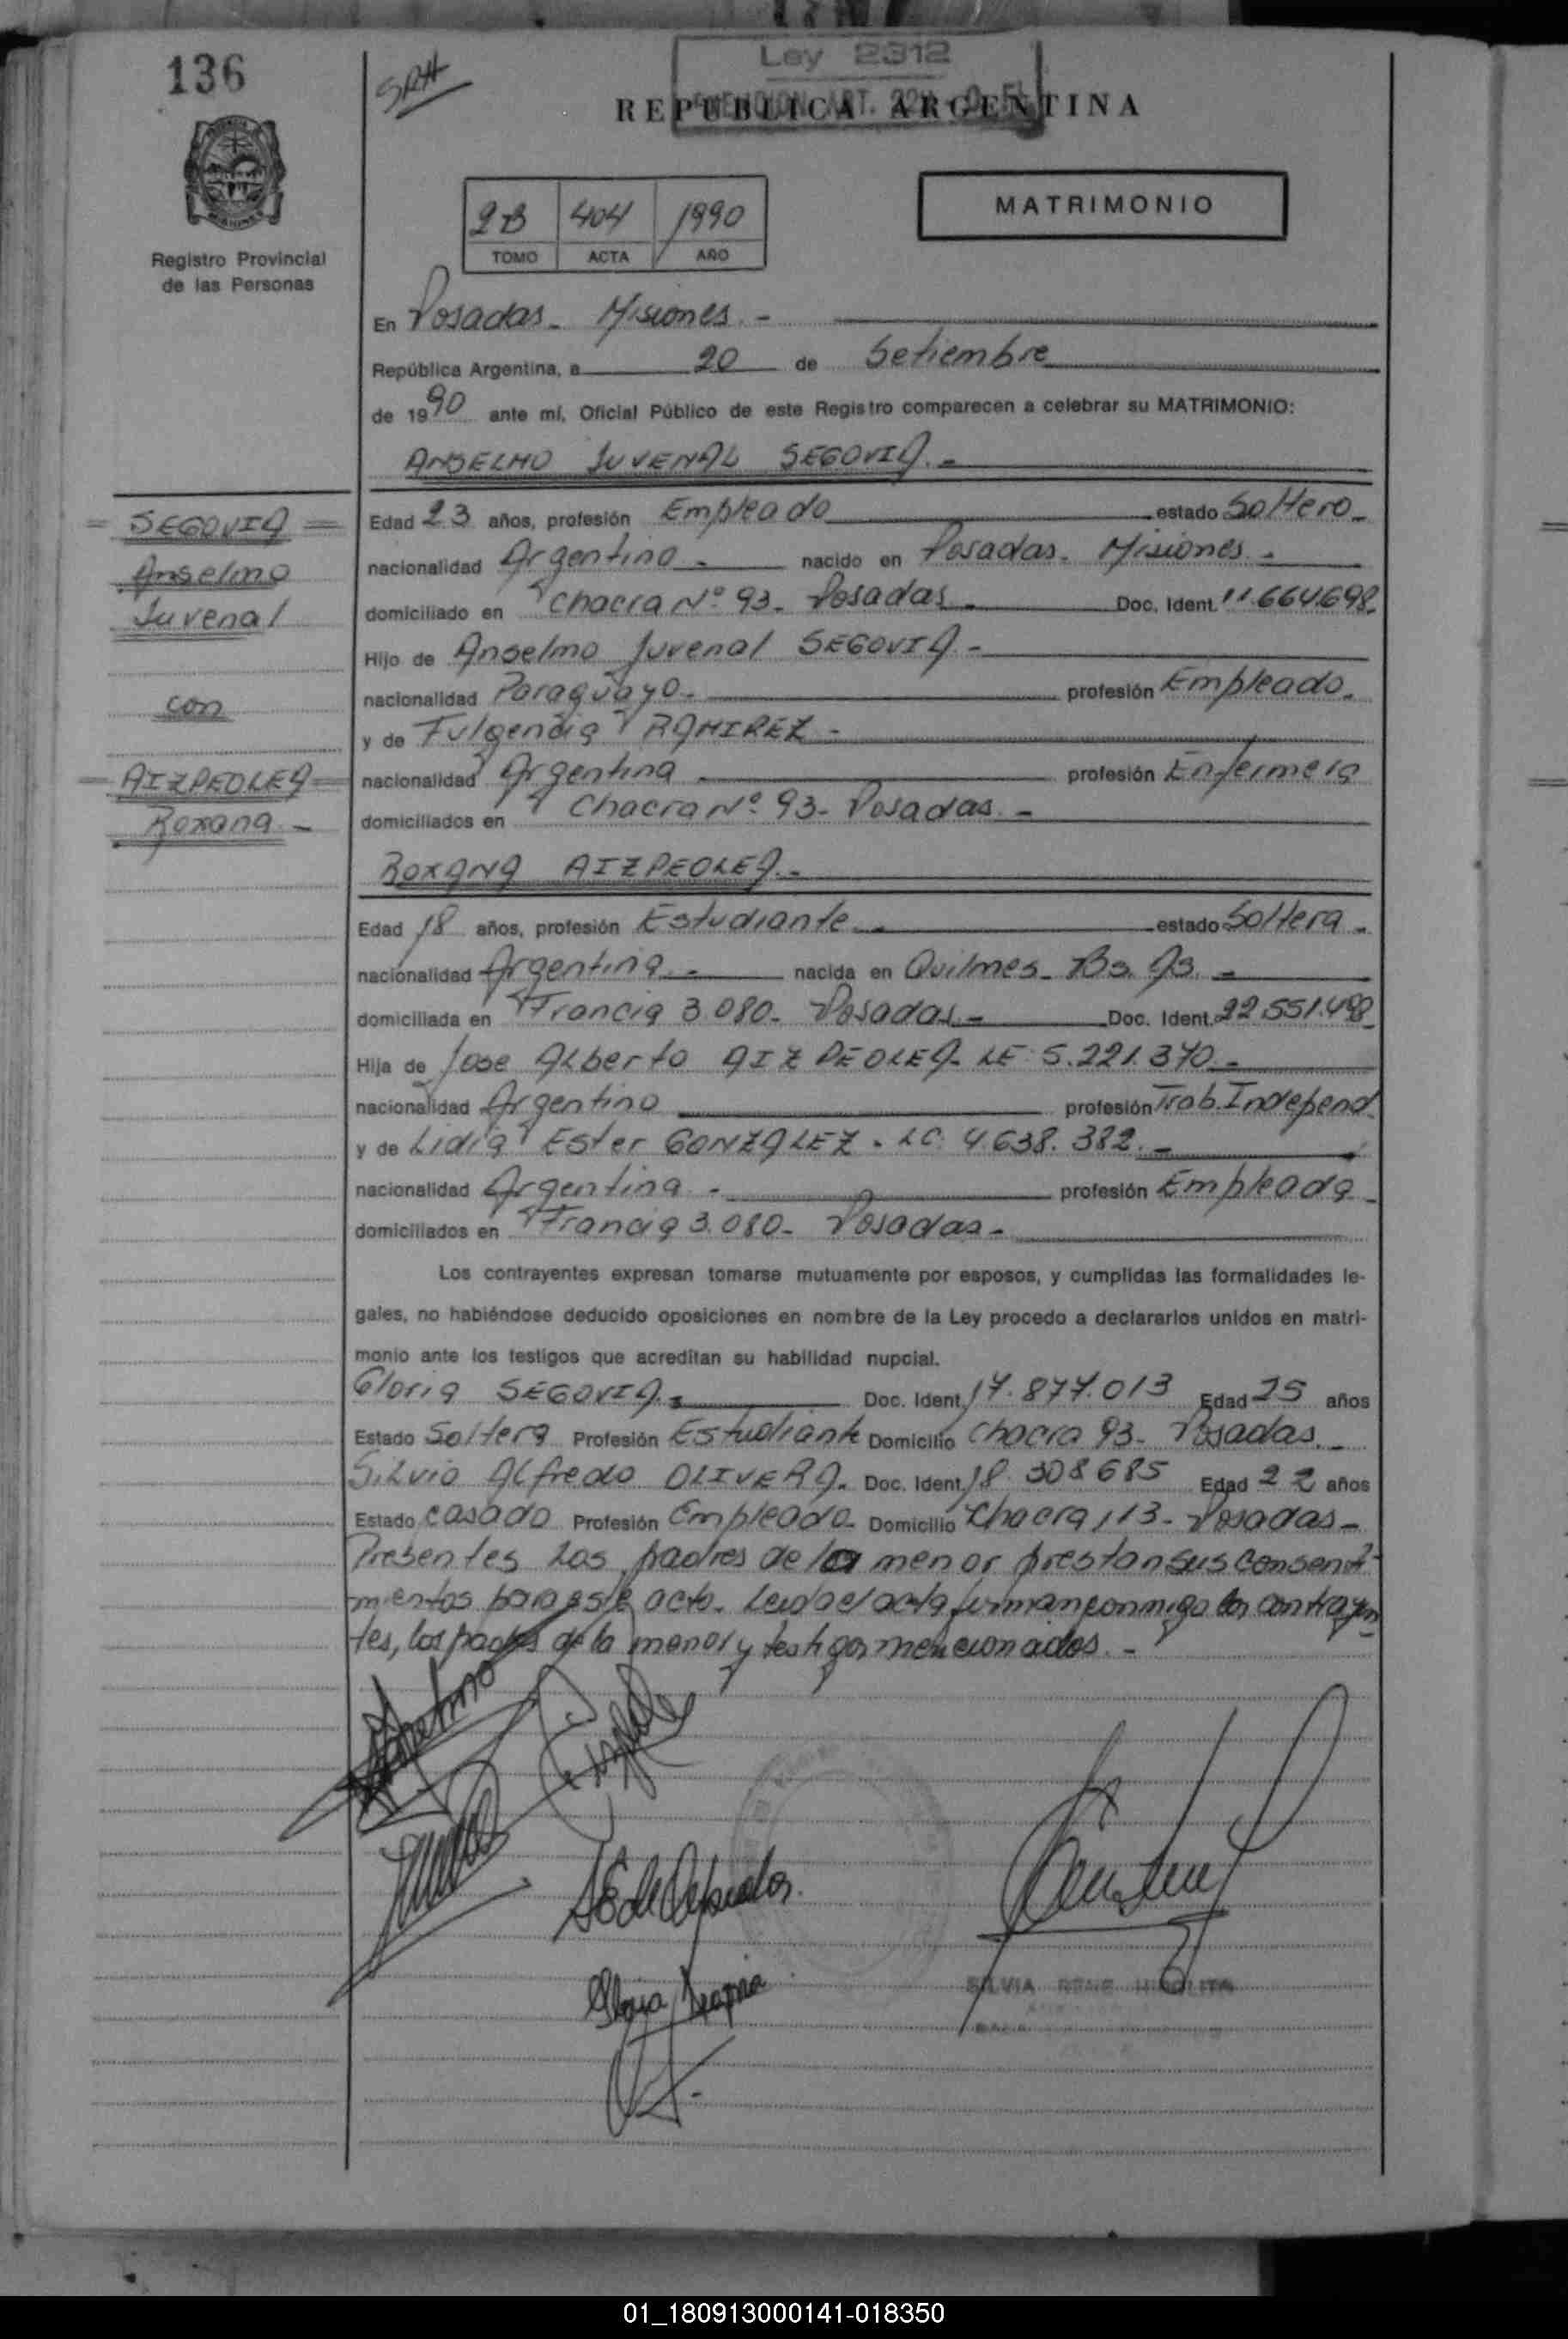 136
SRH
Ley 2312
REPUBLICA ARGENTINA
2B 404 1990
TOMO ACTA AÑO
MATRIMONIO
Registro Provincial
de las Personas
En Posadas - Misiones. -
República Argentina, a 20 de Setiembre
de 1990 ante mí, Oficial Público de este Registro comparecen a celebrar su MATRIMONIO:
ANSELMO JUVENAL SEGOVIA. -
= SEGOVIA =
Anselmo
Juvenal
con
= AIZPEOLEA =
Roxana -
Edad 23 años, profesión Empleado estado Soltero -
nacionalidad Argentino - nacido en Posadas - Misiones -
domiciliado en Chacra Nº 93 - Posadas - Doc. Ident. 11.664.698.
Hijo de Anselmo Juvenal SEGOVIA -
nacionalidad Paraguayo - profesión Empleado.
y de Fulgencia RAMIREZ -
nacionalidad Argentina profesión Enfermera
domiciliados en Chacra Nº 93 - Posadas. -
ROXANA AIZPEOLEA. -
Edad 18 años, profesión Estudiante - estado Soltera -
nacionalidad Argentina - nacida en Quilmes - Bs. As. -
domiciliada en Francia 3.080 - Posadas - Doc. Ident. 22.551.498
Hija de Jose Alberto AIZPEOLEA - LE: 5.221.370. -
nacionalidad Argentino profesión Trab. Independ.
y de Lidia Ester GONZALEZ - LC: 4.638.382. -
nacionalidad Argentina - profesión Empleada -
domiciliados en Francia 3.080 - Posadas -
Los contrayentes expresan tomarse mutuamente por esposos, y cumplidas las formalidades le-
gales, no habiéndose deducido oposiciones en nombre de la Ley procedo a declararlos unidos en matri-
monio ante los testigos que acreditan su habilidad nupcial.
Gloria SEGOVIA. - Doc. Ident. 17.877.013 Edad 25 años
Estado Soltera Profesión Estudiante Domicilio Chacra 93 - Posadas. -
Silvio Alfredo OLIVERA. Doc. Ident. 18.308685 Edad 22 años
Estado casado Profesión Empleado - Domicilio Chacra 113 - Posadas -
Presentes los padres de la menor prestan sus consenti-
mientos para este acto. Leida el acta firman conmigo los contrayen-
tes, los padres de la menor y testigos mencionados. -
Anselmo
Gloria Segovia
SILVIA RENE HIPOLITA
01_180913000141-018350